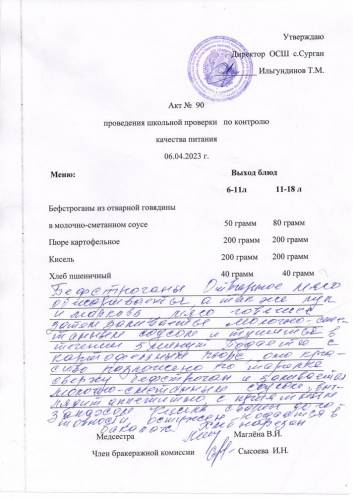 Утверждаю
Директор ОСШ с.Сурган
Ильгундинов Т.М.
Акт № 90
проведения школьной проверки по контролю
качества питания
06.04.2023 г.
Меню: Выход блюд
6-11л 11-18 л
Бефстроганы из отварной говядины
в молочно-сметанном соусе 50 грамм 80 грамм
Пюре картофельное 200 грамм 200 грамм
Кисель 200 грамм 200 грамм
Хлеб пшеничный 40 грамм 40 грамм
Бефстроганы Отварное мясо
а так же лук
и морковь мясо
затем заливается молочно-сме-
танным соусом и тушится в
течении 5 минут Подается с
картофельным пюре, оно кра-
сиво разложено по тарелке
сверху бефстроган и заливается
молочно-сметанным соусом, выг-
лядит аппетитно с приятным
Кисель сварен
подается в
бокалах. Хлеб нарезан
Медсестра Маглёна В.Й.
Член бракеражной комиссии Сысоева И.Н.